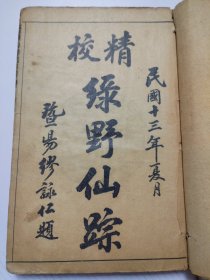 民國十三年夏月
精校
綠野仙踪
暨陽繆詠仁題